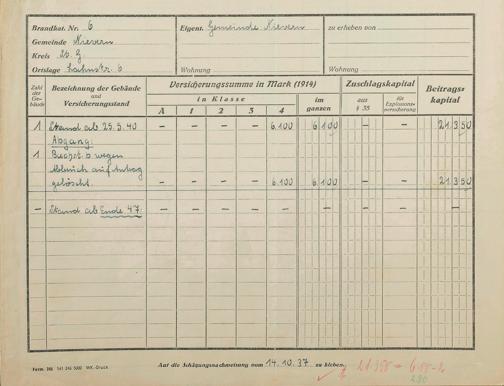 Brandkat. Nr. 6
Gemeinde Nievern
Kreis
Ortslage Lahnstr. 6
Eigent. Gemeinde Nievern
Wohnung
zu erheben von
Wohnung
Zahl der Gebäude
Bezeichnung der Gebäude und Versicherungsstand
Versicherungssumme in Mark (1914)
in Klasse
A 1 2 3 4
im ganzen
Zuschlagskapital
aus § 35
für Explosionsversicherung
Beitragskapital
1 Stand ab 25.5.40 – – – – 6.100 6 100 – – 21.350
Abgang:
1 wegen
Abbruch auf Antrag
gelöscht. – – – – 6.100 6.100 – – 21.350
– Stand ab Ende 47: – – – – – – – – –
Form. 245 141 245 5000 WK.-Druck
Auf die Schätzungsnachweisung vom 14.10.37 zu kleben.